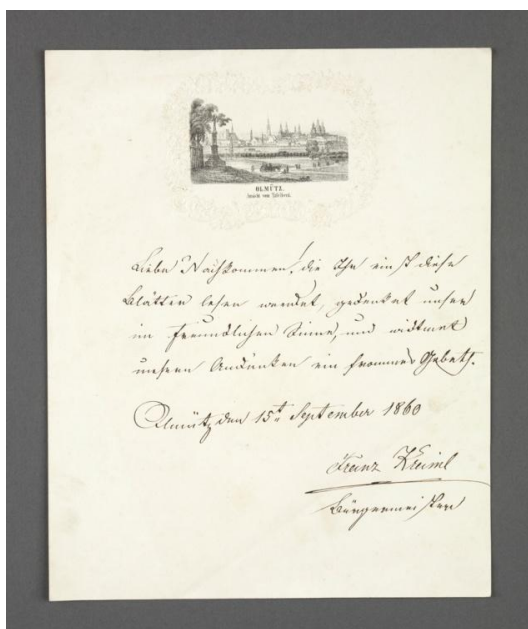 OLMÜTZ.
Liebe Nachkommen! die Ihr einst diese
Blätter lesen werdet, gedenket unser
im freundlichen Sinne, und widmet
unsern Andenken ein frommes Gebeth.
Olmütz den 15t September 1860
Franz Kreiml
Bürgermeister